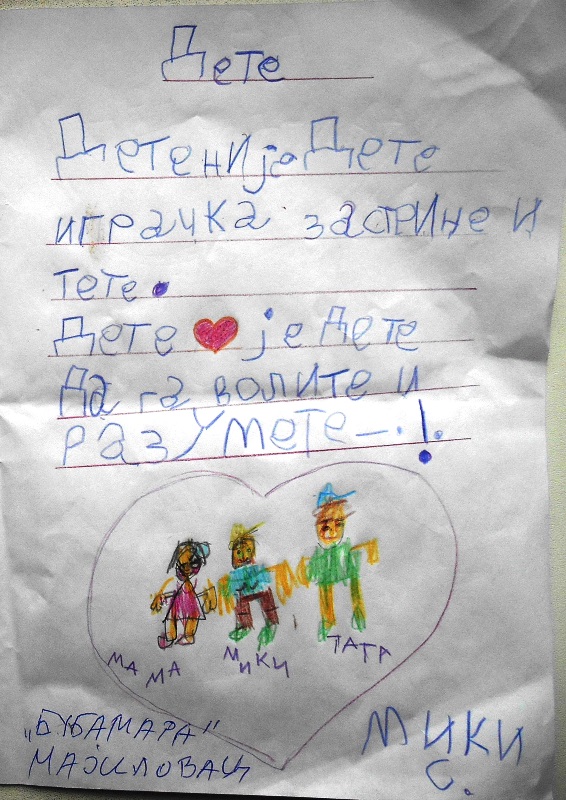 Дете
Дете није Дете
играчка за стрине и
тете.
Дете је Дете
Да га волите и
разумете–.!
МАМА
Мики
ТАТА
„БУБАМАРА“
МАЈИЛОВАЦ
Мики
С.